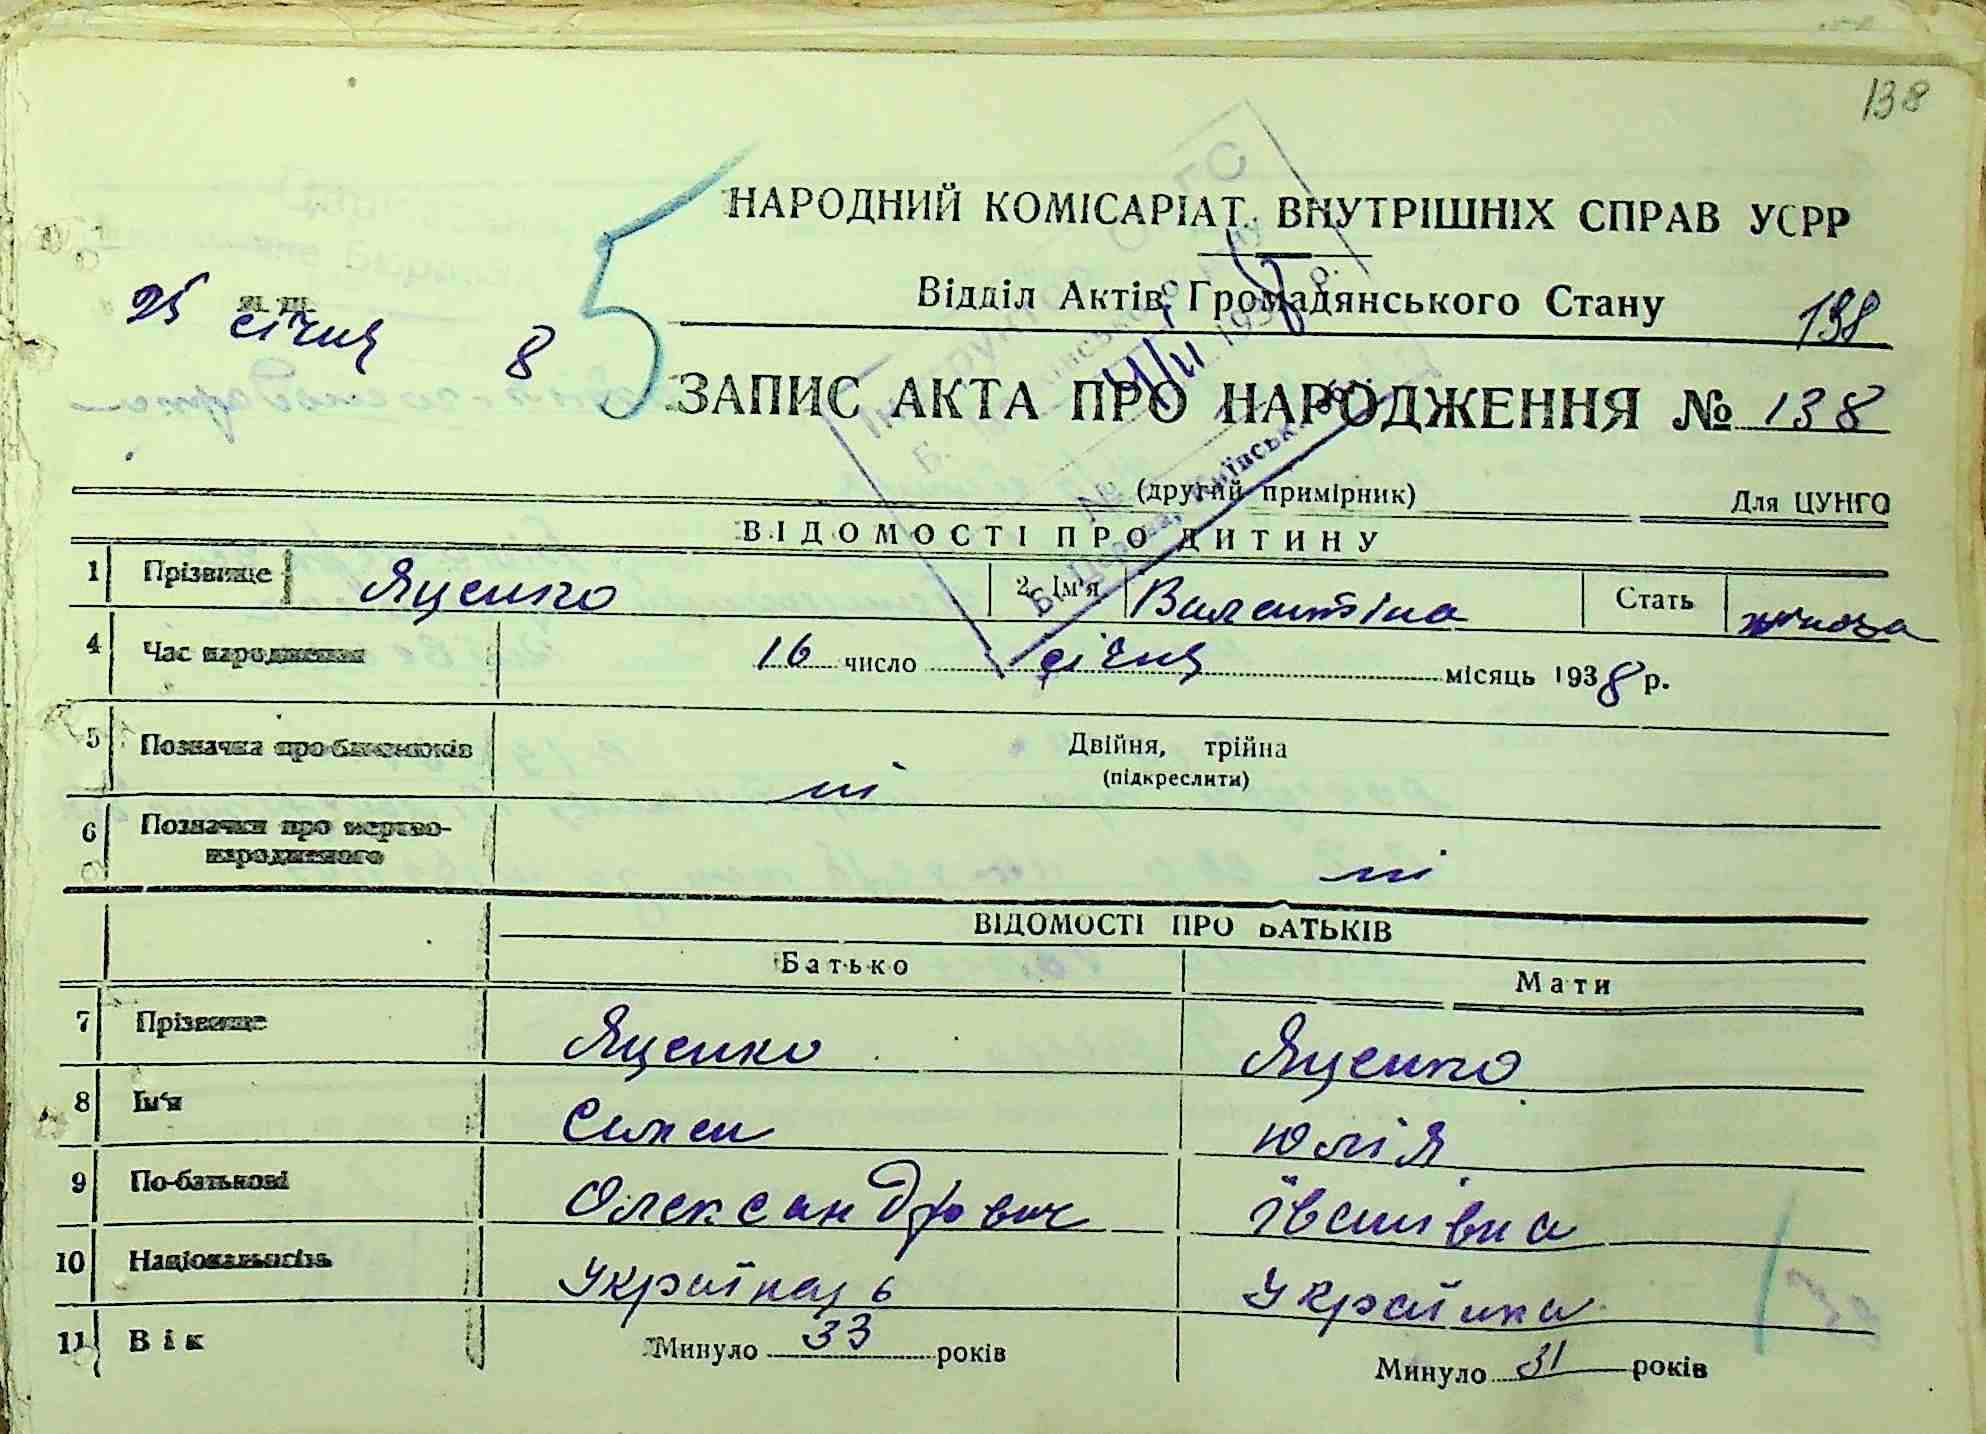 138
НАРОДНИЙ КОМІСАРІАТ ВНУТРІШНІХ СПРАВ УСРР
Відділ Актів Громадянського Стану
138
25 січня 8
5
ЗАПИС АКТА ПРО НАРОДЖЕННЯ № 138
(другий примірник)
Для ЦУНГО
ВІДОМОСТІ ПРО ДИТИНУ
1 Прізвище Яценко 2. Ім'я Валентіна Стать жіноча
4 Час народження 16 число січня місяць 1938 р.
5 Позначка про близнюків Двійня, трійна
(підкреслити)
ні
6 Позначки про мертво-
народженого
ні
ВІДОМОСТІ ПРО БАТЬКІВ
Батько Мати
7 Прізвище Яценко Яценко
8 Ім'я Семен Юлія
9 По-батькові Олександрович Іванівна
10 Національність Українець Українка
11 Вік Минуло 33 років Минуло 31 років